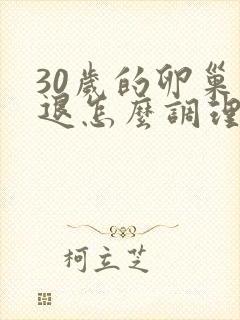 30歲的卵巢
退怎麼調理
柯立芝